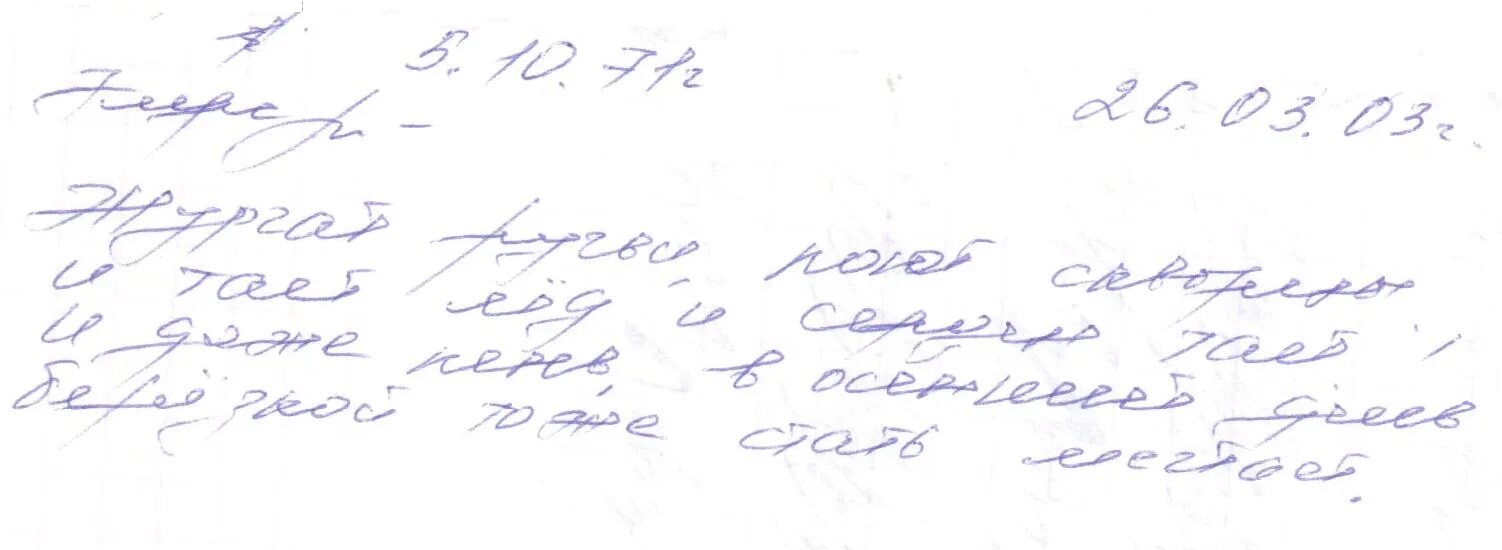 5.10.71г
26.03.03г.
Журчат ручьи, поют скворцы,
и тает лёд и сердце тает,
и даже пень, в осенний день
берёзкой тоже стать мечтает.